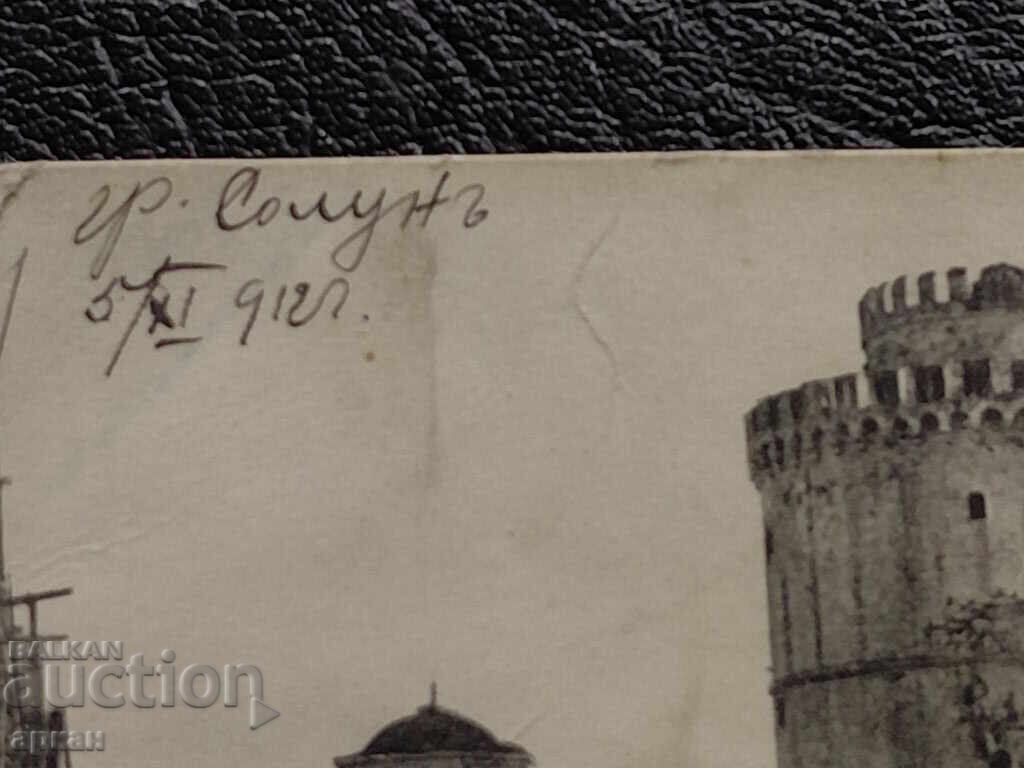 гр. Солунъ
5/XI 912 г.
BALKAN
auction
аркан